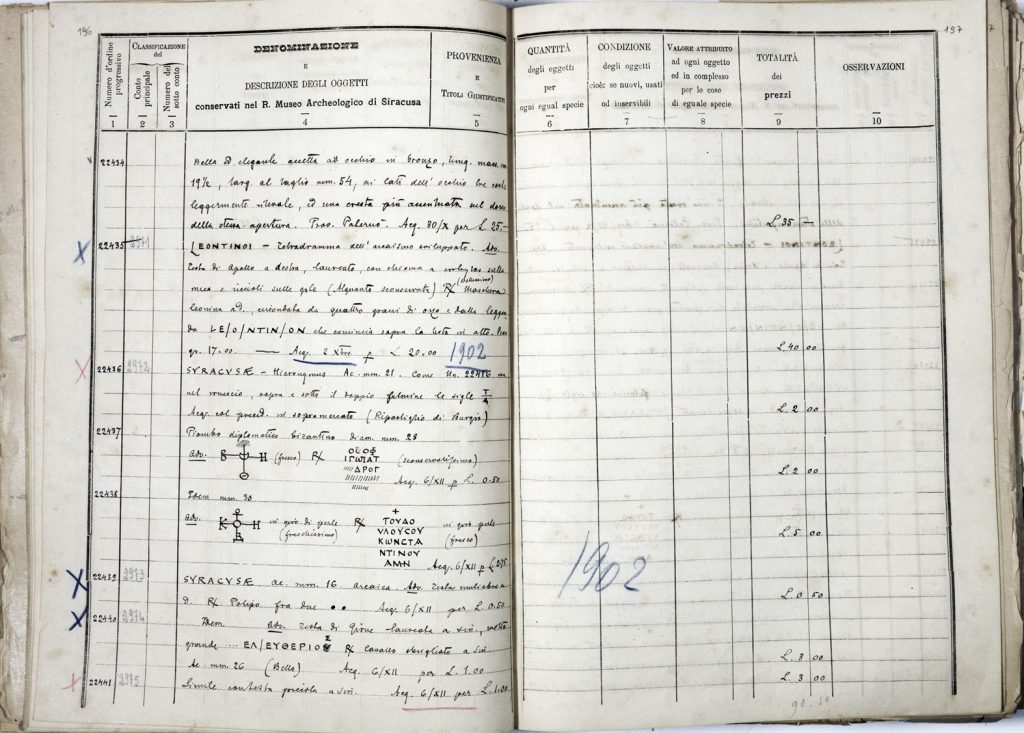 196
197
7
Numero d'ordine progressivo
CLASSIFICAZIONE del
Conto principale
Numero del sotto conto
DENOMINAZIONE
E
DESCRIZIONE DEGLI OGGETTI
conservati nel R. Museo Archeologico di Siracusa
PROVENIENZA
E
TITOLI GIUSTIFICATIVI
QUANTITÀ
degli oggetti
per
ogni egual specie
CONDIZIONE
degli oggetti
cioè: se nuovi, usati
od inservibili
VALORE ATTRIBUITO
ad ogni oggetto
od in complesso
per le cose
di eguale specie
TOTALITÀ
dei
prezzi
OSSERVAZIONI
1 2 3 4 5 6 7 8 9 10
22434 Bella ed elegante accetta ad occhio in bronzo, lung. mass. cm
19½, larg. al taglio mm. 54, ai lati dell' occhio tre
leggermente rilevate, ed una cresta più accentuata sul dorso
della stessa apertura. Prov. Palermo. Acq. 30/X per L. 25.- L. 35 —
22435 2971 LEONTINOI - Tetradramma dell'arcaismo sviluppato. Adv.
Testa di Apollo a destra, laureato, con chioma a sulla
nuca e riccioli sulle gote (Alquanto sconservata) R/ (bellissimo) Maschera
leonina a d., circondata da quattro grani di orzo e dalla leggen
da LE/O/NTIN/ON che comincia sopra la testa in alto. Peso
gr. 17.00. — Acq. 2 Xbre p L 20.00 1902 L. 40 00
22436 2972 SYRACVSÆ - Hieronymos Ae. mm. 21. Come Un. 22416 ma
nel rovescio, sopra e sotto il doppio fulmine le sigle
Acq. col preced. in sopramercato (Ripostiglio di Burgio) L. 2 00
22437 Piombo diplomatico bizantino diam. mm. 28
Adv. (fresco) R/ ΘΕΟΦ
ΙΓΩΠΑΤ (sconservatissimo)
ΔΡΟΓ
Acq. 6/XII p L. 0.50 L. 2 00
22438 Idem mm. 30
Adv. K H in giro di perle (freschissimo) R/ +
ΤΟΥΔΟ in giro perle
ΥΛΟΥCΟΥ (fresco)
ΚΩΝCΤΑ
ΝΤΙΝΟΥ
ΑΜΝ Acq. 6/XII p L. 2.75 L. 5 00
1902
22439 2973 SYRACVSÆ ae. mm. 16. arcaica. Adv. Testa muliebre a
d. R/ Polipo fra due •• Acq. 6/XII per L. 0.50 L. 0 50
22440 2974 Idem. Adv. Testa di Giove laureata a sin., molto
grande .... ΕΛ/ΕΥΘΕΡΙΟΣ R/ Cavallo sbrigliato a sin.
Ae. mm. 26 (Bello) Acq. 6/XII per L. 1.00 L. 3 00
22441 2975 Simile con testa piccola a sin. Acq. 6/XII per L. 1.00 L. 3 00
90.50